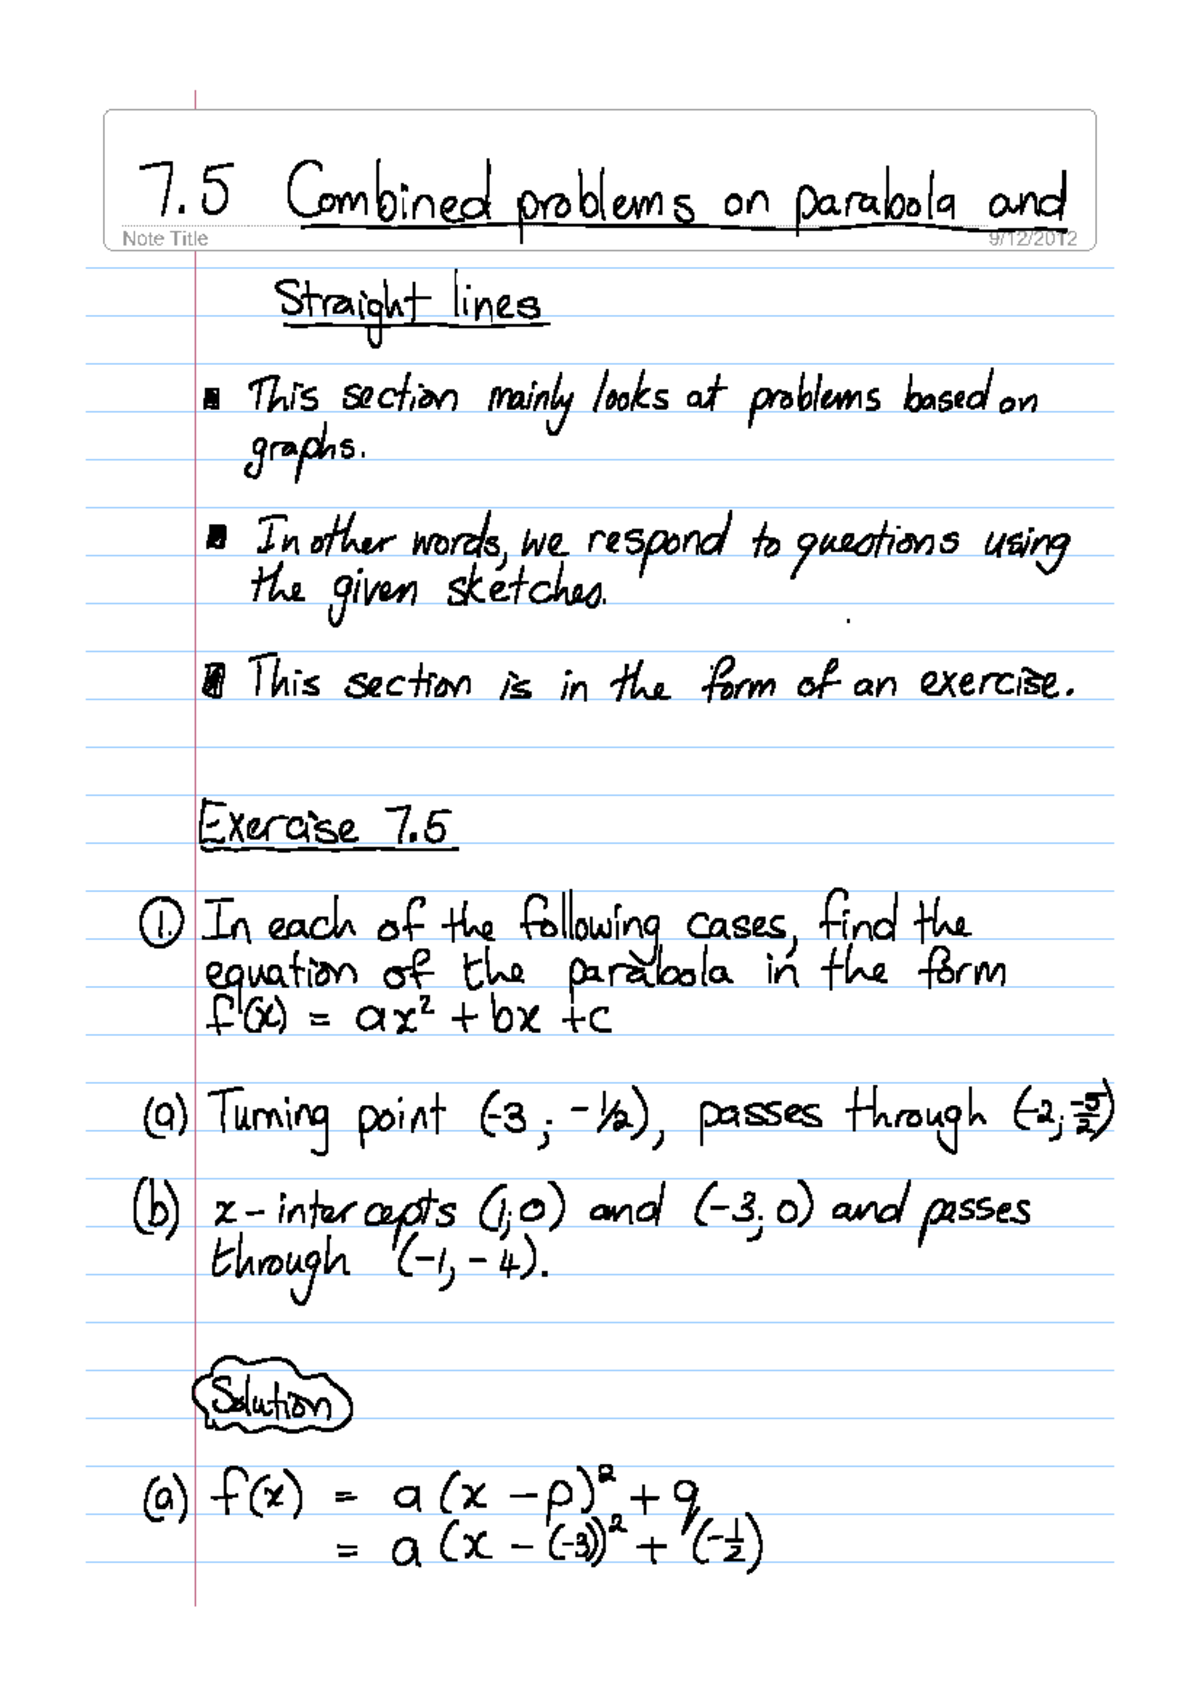 7.5 Combined problems on parabola and
Note Title
9/12/2012
Straight lines
▪ This section mainly looks at problems based on
graphs.
▪ In other words, we respond to questions using
the given sketches.
▪ This section is in the form of an exercise.
Exercise 7.5
① In each of the following cases, find the
equation of the parabola in the form
f(x) = ax² + bx + c
(a) Turning point (-3 ; -1/2), passes through (-2; -5/2)
(b) x-intercepts (1; 0) and (-3; 0) and passes
through (-1, -4).
Solution
(a) f(x) = a(x - p)² + q
= a(x - (-3))² + (-1/2)